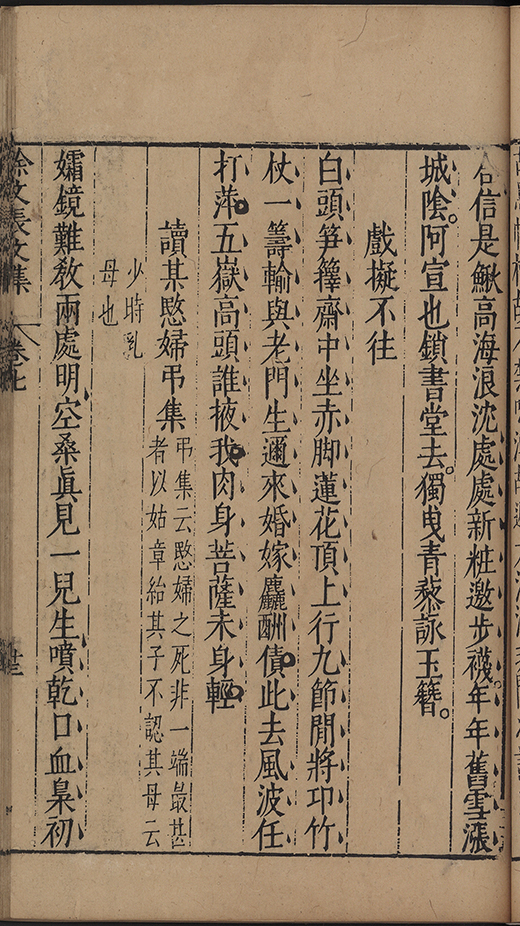 合信是鰍高海浪沈處處新粧邀步襪年年舊雪漲
城陰阿宣也鎖書堂去獨曳青藜詠玉簪
戲擬不往
白頭笋籜齋中坐赤脚蓮花頂上行九節閒將邛竹
杖一籌輸與老門生邇來婚嫁麤酬債此去風波任
打萍五嶽高頭誰掖我肉身菩薩未身輕
讀某愍婦弔集
弔集云愍婦之死非一端最甚
者以姑章紿其子不認其母云
少時乳
母也
孀鏡難教兩處明空桑眞見一兒生噴乾口血梟初
徐文長文集
卷七
廿三